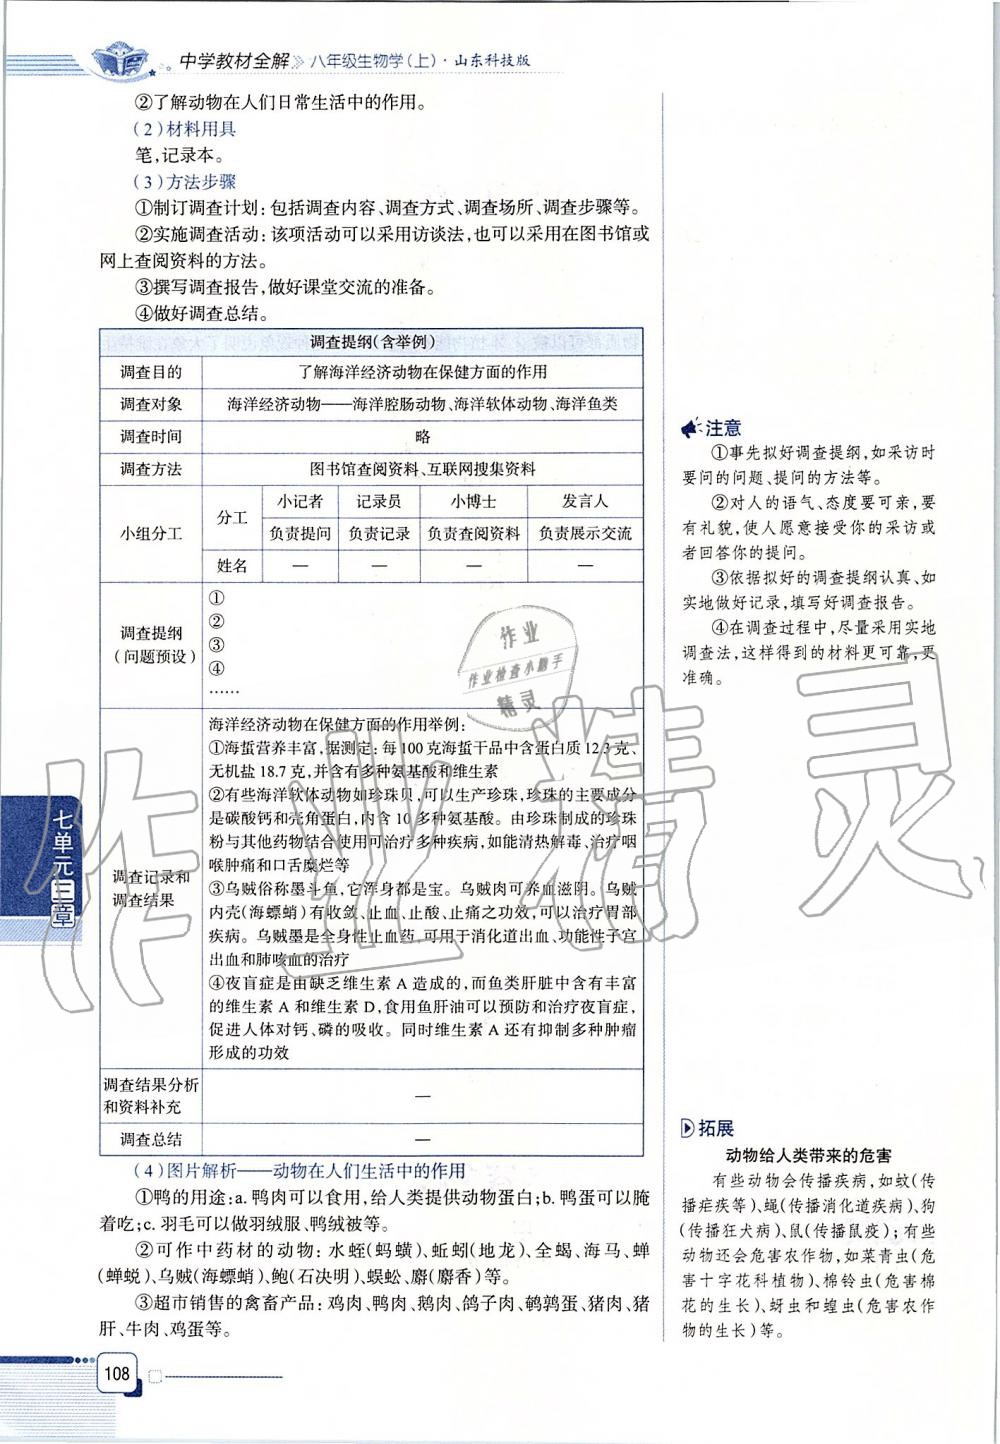 中学教材全解 八年级生物学(上)·山东科技版
②了解动物在人们日常生活中的作用。
(2)材料用具
笔,记录本。
(3)方法步骤
①制订调查计划:包括调查内容、调查方式、调查场所、调查步骤等。
②实施调查活动:该项活动可以采用访谈法,也可以采用在图书馆或
网上查阅资料的方法。
③撰写调查报告,做好课堂交流的准备。
④做好调查总结。
调查提纲(含举例)
调查目的 了解海洋经济动物在保健方面的作用
调查对象 海洋经济动物——海洋腔肠动物、海洋软体动物、海洋鱼类
调查时间 略
调查方法 图书馆查阅资料、互联网搜集资料
小组分工 分工 小记者 记录员 小博士 发言人
负责提问 负责记录 负责查阅资料 负责展示交流
姓名 — — — —
调查提纲
(问题预设)
①
②
③
④
……
调查记录和
调查结果
海洋经济动物在保健方面的作用举例:
①海蜇营养丰富,据测定:每100克海蜇干品中含蛋白质12.3克、
无机盐18.7克,并含有多种氨基酸和维生素
②有些海洋软体动物如珍珠贝,可以生产珍珠,珍珠的主要成分
是碳酸钙和壳角蛋白,内含10多种氨基酸。由珍珠制成的珍珠
粉与其他药物结合使用可治疗多种疾病,如能清热解毒、治疗咽
喉肿痛和口舌糜烂等
③乌贼俗称墨斗鱼,它浑身都是宝。乌贼肉可养血滋阴。乌贼
内壳(海螵蛸)有收敛、止血、止酸、止痛之功效,可以治疗胃部
疾病。乌贼墨是全身性止血药,可用于消化道出血、功能性子宫
出血和肺咳血的治疗
④夜盲症是由缺乏维生素A造成的,而鱼类肝脏中含有丰富
的维生素A和维生素D,食用鱼肝油可以预防和治疗夜盲症,
促进人体对钙、磷的吸收。同时维生素A还有抑制多种肿瘤
形成的功效
调查结果分析
和资料补充
—
调查总结 —
(4)图片解析——动物在人们生活中的作用
①鸭的用途:a.鸭肉可以食用,给人类提供动物蛋白;b.鸭蛋可以腌
着吃;c.羽毛可以做羽绒服、鸭绒被等。
②可作中药材的动物:水蛭(蚂蟥)、蚯蚓(地龙)、全蝎、海马、蝉
(蝉蜕)、乌贼(海螵蛸)、鲍(石决明)、蜈蚣、麝(麝香)等。
③超市销售的禽畜产品:鸡肉、鸭肉、鹅肉、鸽子肉、鹌鹑蛋、猪肉、猪
肝、牛肉、鸡蛋等。
注意
①事先拟好调查提纲,如采访时
要问的问题、提问的方法等。
②对人的语气、态度要可亲,要
有礼貌,使人愿意接受你的采访或
者回答你的提问。
③依据拟好的调查提纲认真、如
实地做好记录,填写好调查报告。
④在调查过程中,尽量采用实地
调查法,这样得到的材料更可靠,更
准确。
拓展
动物给人类带来的危害
有些动物会传播疾病,如蚊(传
播疟疾等)、蝇(传播消化道疾病)、狗
(传播狂犬病)、鼠(传播鼠疫);有些
动物还会危害农作物,如菜青虫(危
害十字花科植物)、棉铃虫(危害棉
花的生长)、蚜虫和蝗虫(危害农作
物的生长)等。
七单元三章
108
作业
作业检查小助手
精灵
作业精灵